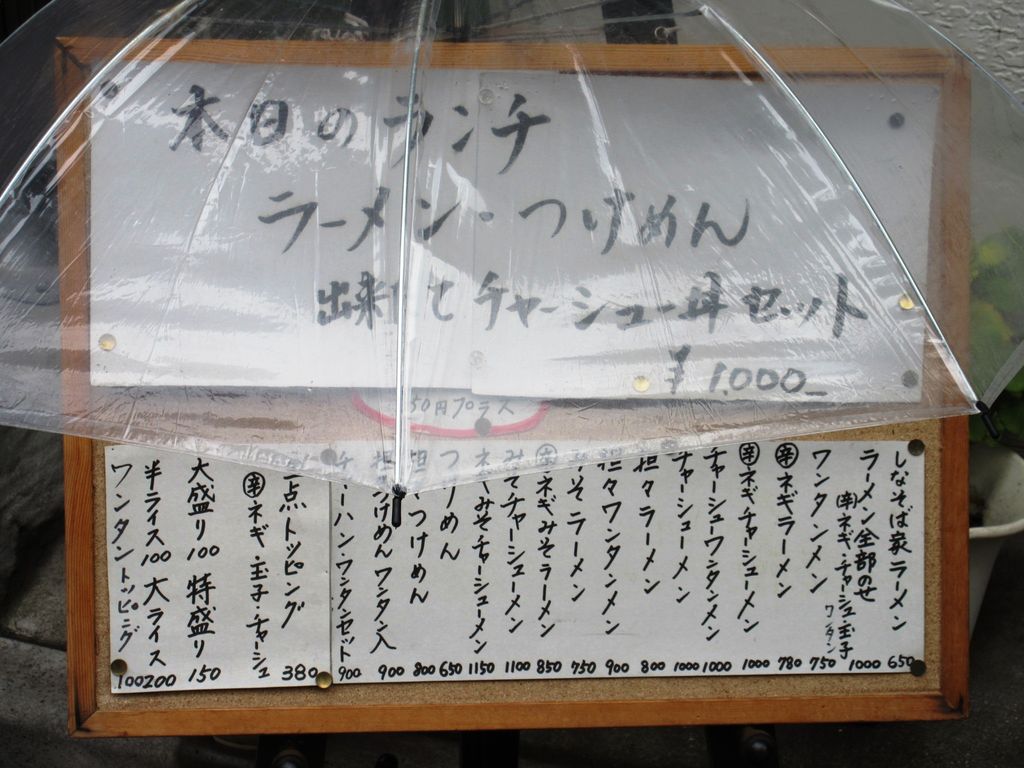 本日のランチ
ラーメン・つけめん
出来立てチャーシュー丼セット
¥1,000_
50円プラス
しなそば家ラーメン 650
ラーメン全部のせ 1000
㊛ネギ・チャーシュー・玉子
ワンタン
ワンタンメン 750
㊛ネギラーメン 780
㊛ネギ・チャーシューメン 1000
チャーシューワンタンメン 1000
チャーシューメン 1000
担々ラーメン 800
担々ワンタンメン 900
みそラーメン 750
㊛ネギみそラーメン 850
みそチャーシューメン 1100
ネギみそチャーシューメン 1150
つけめん 650
担々つけめん 800
つけめんワンタン入 900
チャーハン・ワンタンセット 900
三点トッピング 380
㊛ネギ・玉子・チャーシュー
大盛り 100 特盛り 150
半ライス 100 大ライス 200
ワンタントッピング 100